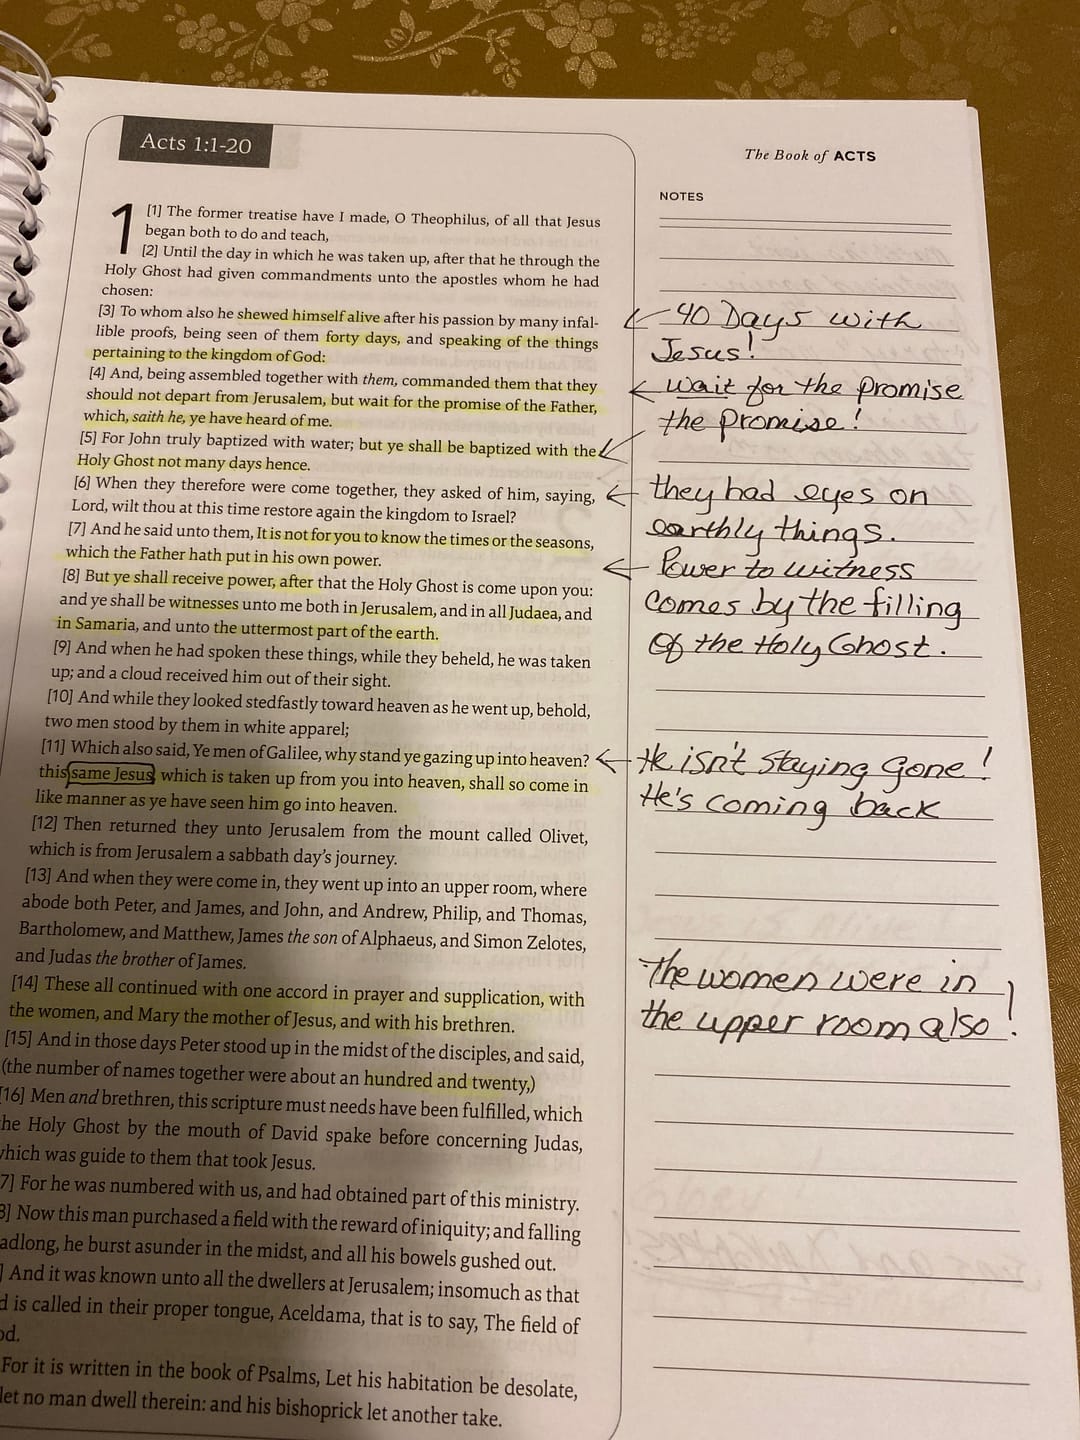 Acts 1:1-20
The Book of ACTS
NOTES
1
[1] The former treatise have I made, O Theophilus, of all that Jesus
began both to do and teach,
[2] Until the day in which he was taken up, after that he through the
Holy Ghost had given commandments unto the apostles whom he had
chosen:
[3] To whom also he shewed himself alive after his passion by many infal-
lible proofs, being seen of them forty days, and speaking of the things
pertaining to the kingdom of God:
[4] And, being assembled together with them, commanded them that they
should not depart from Jerusalem, but wait for the promise of the Father,
which, saith he, ye have heard of me.
[5] For John truly baptized with water; but ye shall be baptized with the
Holy Ghost not many days hence.
[6] When they therefore were come together, they asked of him, saying,
Lord, wilt thou at this time restore again the kingdom to Israel?
[7] And he said unto them, It is not for you to know the times or the seasons,
which the Father hath put in his own power.
[8] But ye shall receive power, after that the Holy Ghost is come upon you:
and ye shall be witnesses unto me both in Jerusalem, and in all Judaea, and
in Samaria, and unto the uttermost part of the earth.
[9] And when he had spoken these things, while they beheld, he was taken
up; and a cloud received him out of their sight.
[10] And while they looked stedfastly toward heaven as he went up, behold,
two men stood by them in white apparel;
[11] Which also said, Ye men of Galilee, why stand ye gazing up into heaven?
this same Jesus, which is taken up from you into heaven, shall so come in
like manner as ye have seen him go into heaven.
[12] Then returned they unto Jerusalem from the mount called Olivet,
which is from Jerusalem a sabbath day's journey.
[13] And when they were come in, they went up into an upper room, where
abode both Peter, and James, and John, and Andrew, Philip, and Thomas,
Bartholomew, and Matthew, James the son of Alphaeus, and Simon Zelotes,
and Judas the brother of James.
[14] These all continued with one accord in prayer and supplication, with
the women, and Mary the mother of Jesus, and with his brethren.
[15] And in those days Peter stood up in the midst of the disciples, and said,
(the number of names together were about an hundred and twenty,)
16] Men and brethren, this scripture must needs have been fulfilled, which
he Holy Ghost by the mouth of David spake before concerning Judas,
which was guide to them that took Jesus.
7] For he was numbered with us, and had obtained part of this ministry.
8] Now this man purchased a field with the reward of iniquity; and falling
adlong, he burst asunder in the midst, and all his bowels gushed out.
] And it was known unto all the dwellers at Jerusalem; insomuch as that
d is called in their proper tongue, Aceldama, that is to say, The field of
od.
For it is written in the book of Psalms, Let his habitation be desolate,
let no man dwell therein: and his bishoprick let another take.
40 Days with
Jesus!
wait for the promise
the promise!
they had eyes on
earthly things.
Power to witness
comes by the filling
of the Holy Ghost.
He isn't staying gone!
He's coming back
The women were in
the upper room also!